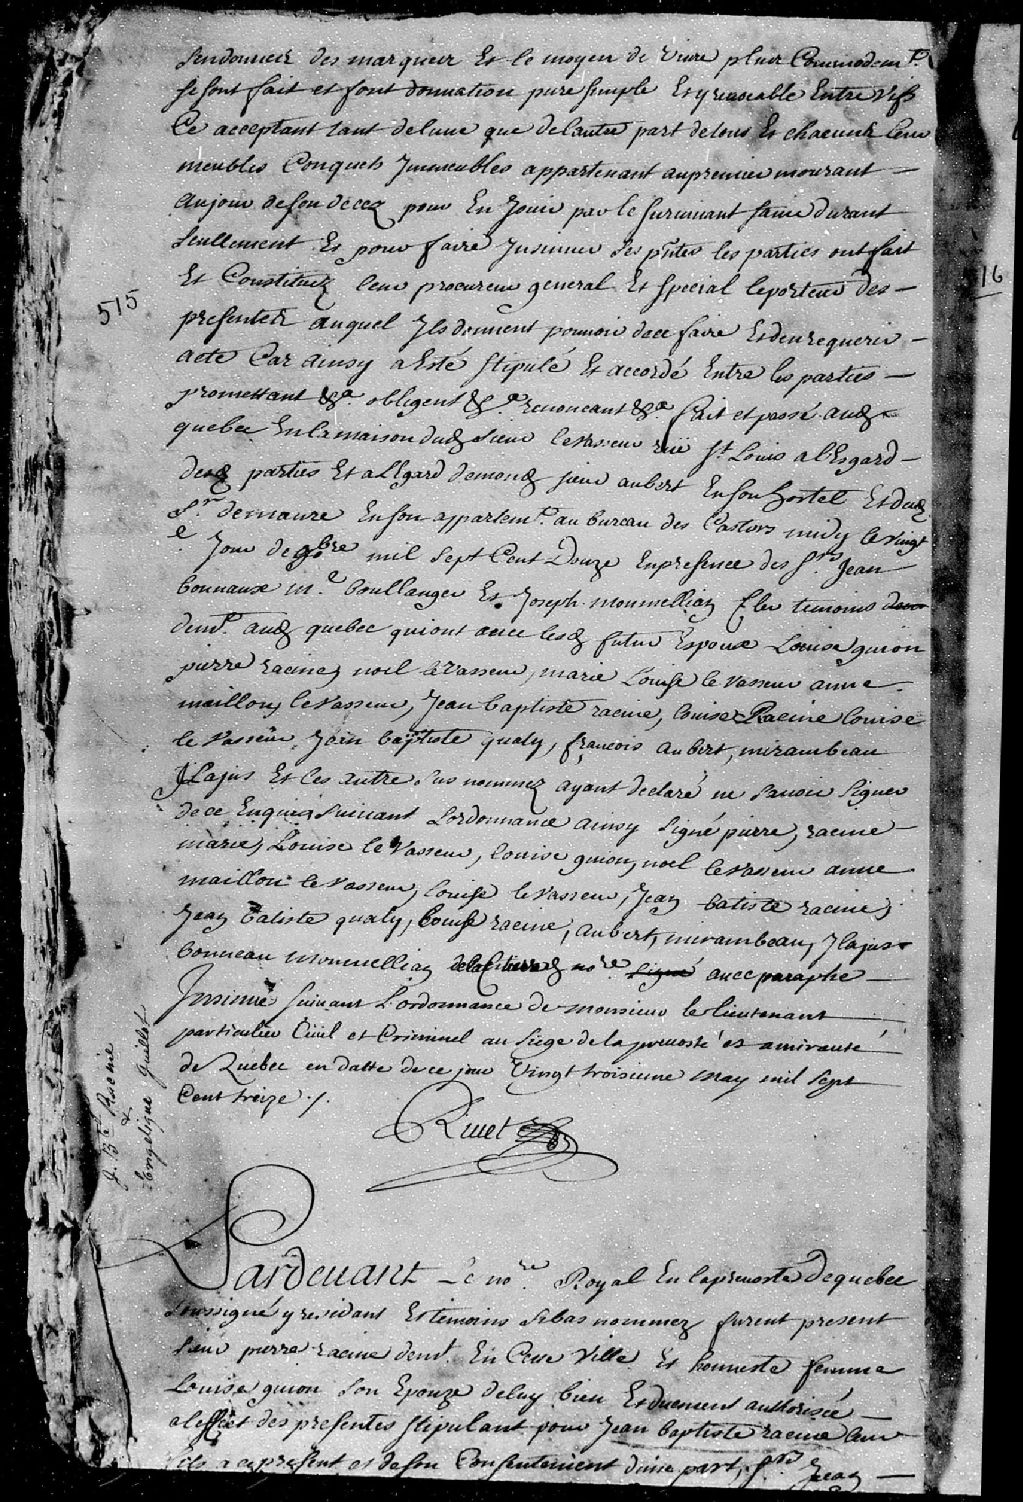 sen donner des marquer Et le moyen de Vivre plus Commodemt
se sont fait et font donnation pure simple Et yrrevocable Entre Vifs
Ce acceptant tant de lune que de lautre part de tous Et chacuns leur
meubles Conquets Jmmeubles appartenant au premier mourant —
au jour de son decez pour En Jouir par le survivant sa vie durant
seullement Et pour faire Jnsinuer Ses pntes les parties ont fait
Et Constituez leur procureur general Et special le porteur des —
presentes auquel Jls donnent pouvoir de ce faire Et den requerir —
acte Car ainsy a Esté stipulé Et accordé Entre les parties —
promettant &a. obligent &a. renoncant &a fait et passé aud
quebec En la maison dud Sieur levasseur rüe St Louis a lEsgard —
desd parties Et a lEgard de mond sieur aubert En son hostel Et dud
Sr. demaure En son appartemt. au bureau des Castors midy le vingt
e. Jour de 9bre mil sept Cent Douze En presence des Srs Jean
bonnaux me. boullanger Et Joseph mommellian tesmoins
demt. aud quebec qui ont avec lesd futur Espoux Louise guion
pierre racine, noel levasseur, marie Louise le vasseur anne
maillou, levasseur, Jean baptiste racine, louise Racine louise
le Vasseur, Jean baptiste qualy, françois aubert, mirambeau
Jlajus Et les autre sus nommez ayant declaré ne savoir signer
de ce Enquis suivant Lordonnance ainsy Signé pierre, racine —
marie, Louise le Vasseur, louise guion, noel levasseur anne
maillou levasseur, louise le vasseur, Jean batiste racine,
Jean batiste qualy, louise racine, aubert, mirambeau, Jlajus
bonneau mommellian dela Cetiere nore signé avec paraphe —
Jnsinué suivant Lordonnance de monsieur le lieutenant
particulier Civil et Criminel au Siege de la prevosté et amirauté
de Quebec en datte de ce jour Vingt troisieme may mil sept
Cent treize ./.
Rivet
515
16
J. Bte Racine
&
Engelique Guillot
Pardevant Le nore. Royal En la prevosté de quebec
soussigné y residant Et temoins sebas nommez furent present
Sieur pierre racine demt. En Cette Ville Et honneste femme
Louise guion son Epouze deluy bien Et duement authorisée —
a leffect des presentes stipulant pour Jean baptiste racine leur
fils a ce present et de son Consentement dune part, Sr Jean —